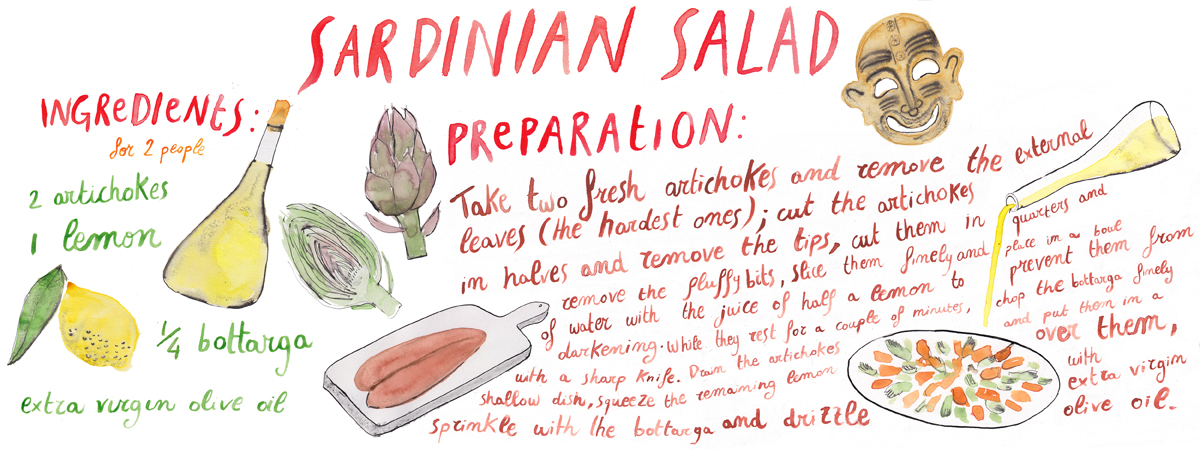 SARDINIAN SALAD
INGREDIENTS:
for 2 people
2 artichokes
1 lemon
1/4 bottarga
extra virgin olive oil
PREPARATION:
Take two fresh artichokes and remove the external
leaves (the hardest ones); cut the artichokes
in halves and remove the tips, cut them in quarters and
remove the fluffy bits, slice them finely and place in a boul
of water with the juice of half a lemon to prevent them from
darkening. While they rest for a couple of minutes, chop the bottarga finely
with a sharp knife. Drain the artichokes and put them in a
shallow dish, squeeze the remaining lemon over them,
sprinkle with the bottarga and drizzle with
extra virgin
olive oil.